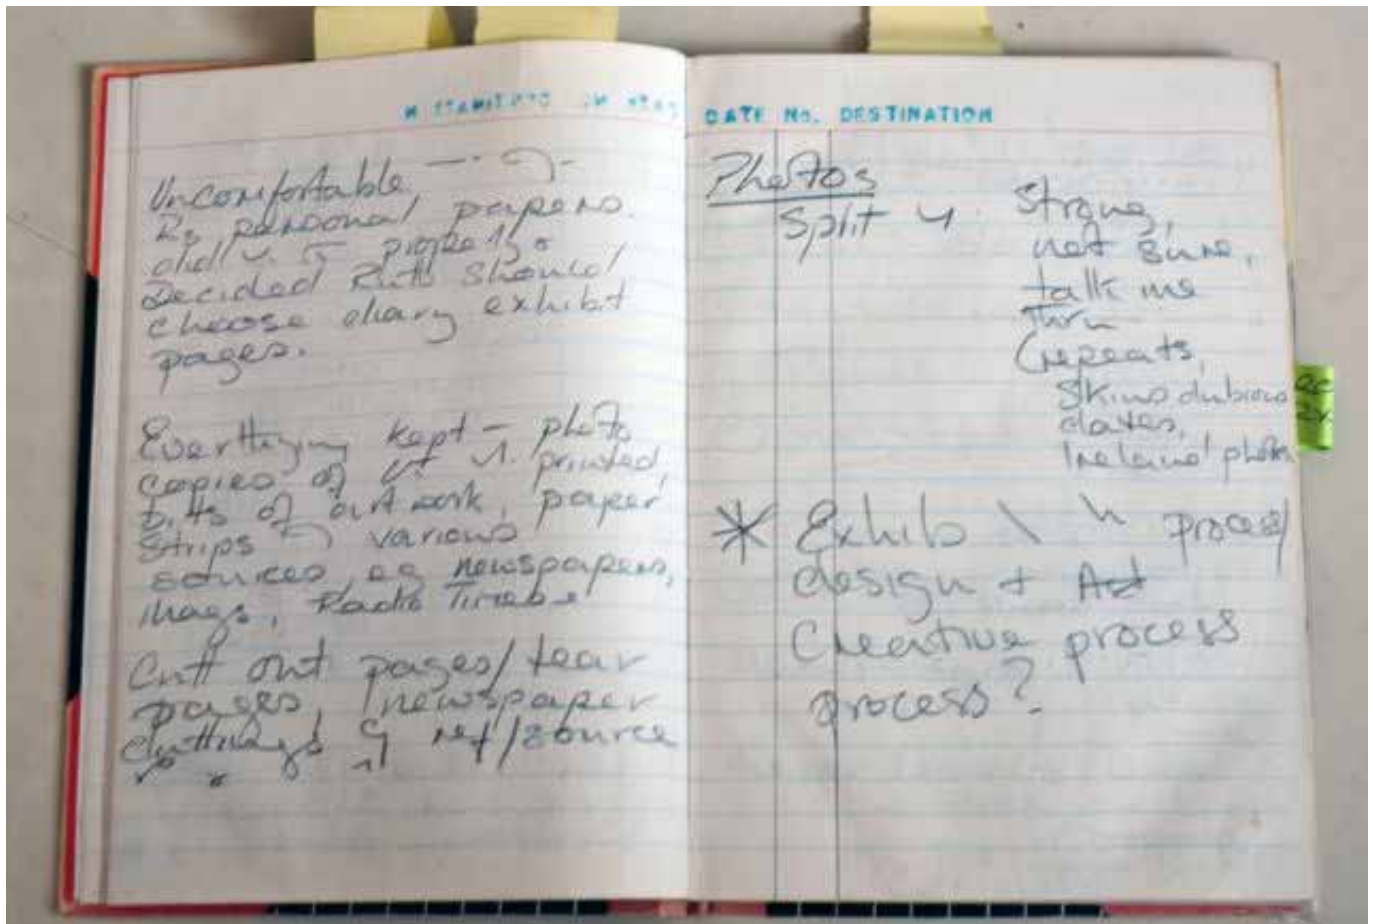 Uncomfortable
Re personal papers.
did properly
Decided Ruth should
choose diary exhibit
pages.
Everthing kept - photo
copies of printed,
bits of artwork, paper
strips various
sources eg newspapers,
mags, Radio Times
Cutt out pages/tear
pages, newspaper
cuttings ref/source
DATE No. DESTINATION
Photos
Split
Strong,
not sure,
talk me
thru
(repeats,
dubious
dates,
Ireland photos
* Exhib process/
design + Art
Creative process
process?